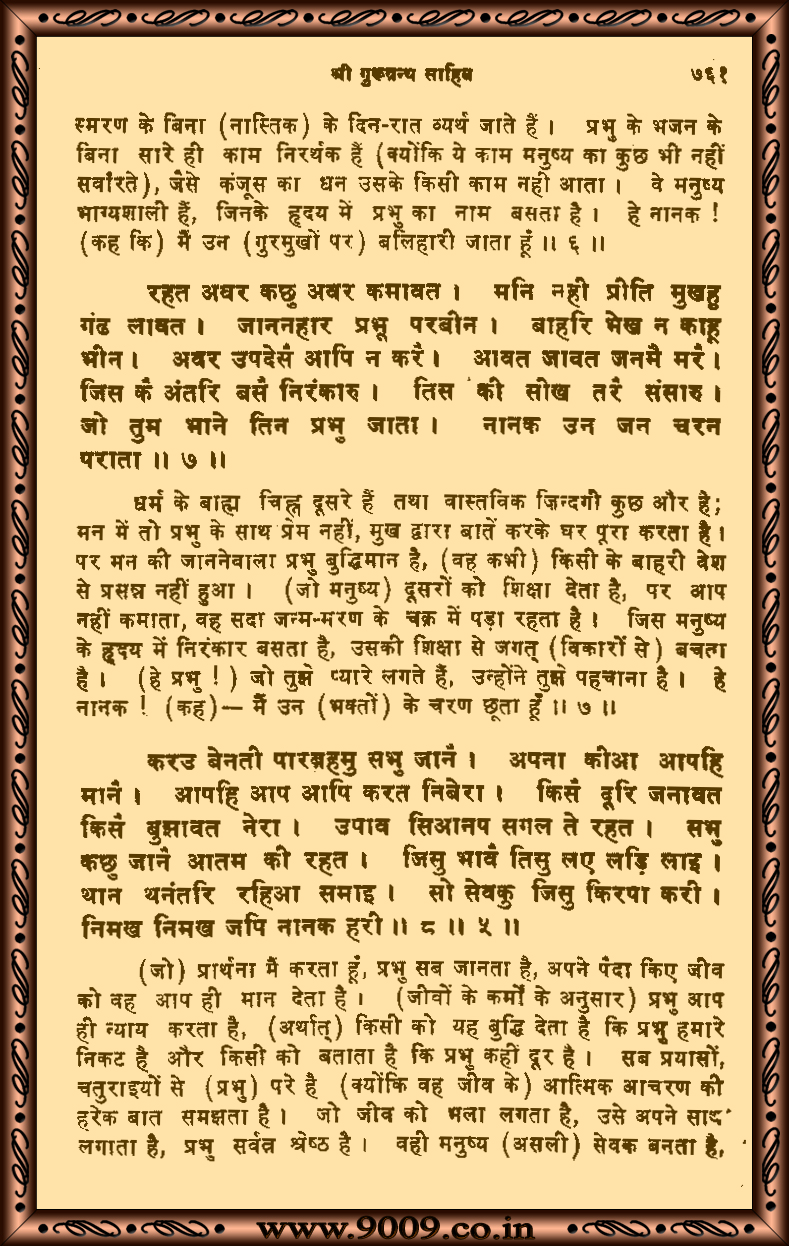 श्री गुरूग्रन्थ साहिब ७६१
स्मरण के बिना (नास्तिक) के दिन-रात व्यर्थ जाते हैं। प्रभु के भजन के
बिना सारे ही काम निरर्थक हैं (क्योंकि ये काम मनुष्य का कुछ भी नहीं
सवाँरते), जैसे कंजूस का धन उसके किसी काम नहीं आता। वे मनुष्य
भाग्यशाली हैं, जिनके हृदय में प्रभु का नाम बसता है। हे नानक !
(कह कि) मैं उन (गुरमुखों पर) बलिहारी जाता हूँ ॥ ६ ॥
रहत अवर कछु अवर कमावत। मनि नही प्रीति मुखहु
गंढ लावत। जाननहार प्रभू परबीन। बाहरि भेख न काहू
भीन। अवर उपदेसै आपि न करै। आवत जावत जनमै मरै।
जिस कै अंतरि बसै निरंकारु। तिस की सीख तरै संसारु।
जो तुम भाने तिन प्रभु जाता। नानक उन जन चरन
पराता ॥ ७ ॥
धर्म के बाह्य चिह्न दूसरे हैं तथा वास्तविक ज़िन्दगी कुछ और है;
मन में तो प्रभु के साथ प्रेम नहीं, मुख द्वारा बातें करके घर पूरा करता है।
पर मन की जाननेवाला प्रभु बुद्धिमान है, (वह कभी) किसी के बाहरी वेश
से प्रसन्न नहीं हुआ। (जो मनुष्य) दूसरों को शिक्षा देता है, पर आप
नहीं कमाता, वह सदा जन्म-मरण के चक्र में पड़ा रहता है। जिस मनुष्य
के हृदय में निरंकार बसता है, उसकी शिक्षा से जगत् (विकारों से) बचता
है। (हे प्रभु !) जो तुझे प्यारे लगते हैं, उन्होंने तुझे पहचाना है। हे
नानक ! (कह)— मैं उन (भक्तों) के चरण छूता हूँ ॥ ७ ॥
करउ बेनती पारब्रहमु सभु जानै। अपना कीआ आपहि
मानै। आपहि आप आपि करत निबेरा। किसै दूरि जनावत
किसै बुझावत नेरा। उपाव सिआनप सगल ते रहत। सभु
कछु जानै आतम की रहत। जिसु भावै तिसु लए लड़ि लाइ।
थान थनंतरि रहिआ समाइ। सो सेवकु जिसु किरपा करी।
निमख निमख जपि नानक हरी ॥ ८ ॥ ५ ॥
(जो) प्रार्थना मैं करता हूँ, प्रभु सब जानता है, अपने पैदा किए जीव
को वह आप ही मान देता है। (जीवों के कर्मों के अनुसार) प्रभु आप
ही न्याय करता है, (अर्थात्) किसी को यह बुद्धि देता है कि प्रभु हमारे
निकट है और किसी को बताता है कि प्रभु कहीं दूर है। सब प्रयासों,
चतुराइयों से (प्रभु) परे है (क्योंकि वह जीव के) आत्मिक आचरण की
हरेक बात समझता है। जो जीव को भला लगता है, उसे अपने साथ
लगाता है, प्रभु सर्वत्र श्रेष्ठ है। वही मनुष्य (असली) सेवक बनता है,
www.9009.co.in